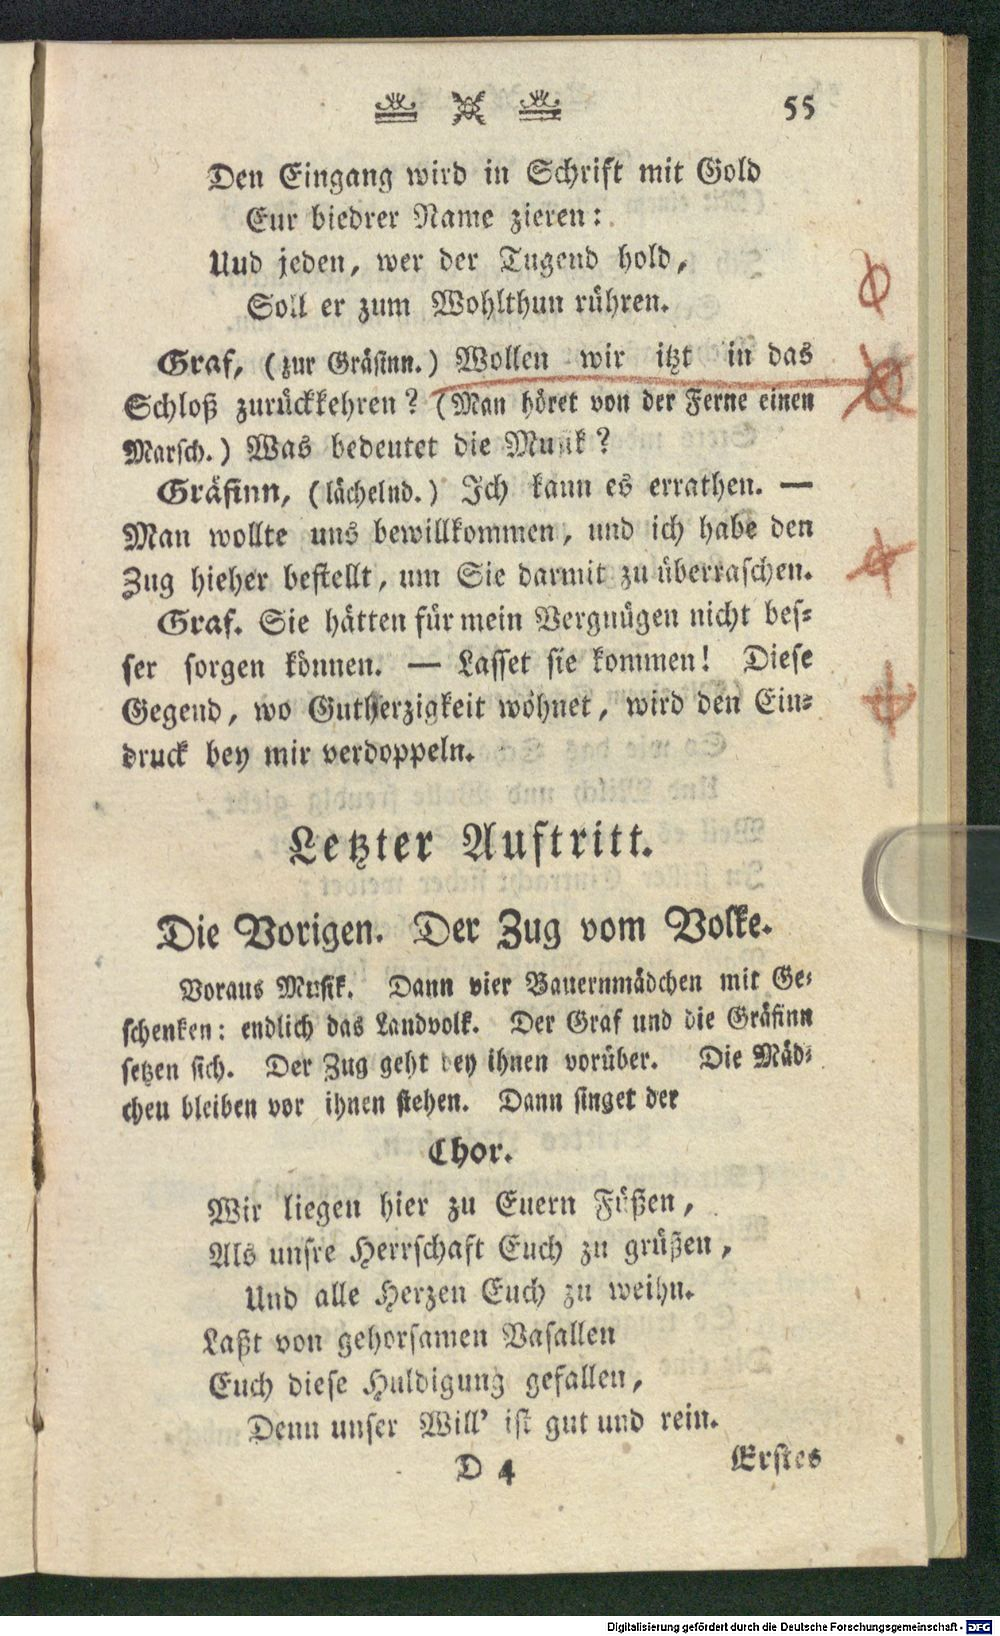 55
Den Eingang wird in Schrift mit Gold
Eur biedrer Name zieren:
Und jeden, wer der Tugend hold,
Soll er zum Wohlthun rühren.
Graf, (zur Gräfinn.) Wollen wir itzt in das
Schloß zurückkehren? (Man höret von der Ferne einen
Marsch.) Was bedeutet die Musik?
Gräfinn, (lächelnd.) Ich kann es errathen. —
Man wollte uns bewillkommen, und ich habe den
Zug hieher bestellt, um Sie darmit zu überraschen.
Graf. Sie hätten für mein Vergnügen nicht bes-
ser sorgen können. — Lasset sie kommen! Diese
Gegend, wo Gutherzigkeit wohnet, wird den Ein-
druck bey mir verdoppeln.
Letzter Auftritt.
Die Vorigen. Der Zug vom Volke.
Voraus Musik. Dann vier Bauernmädchen mit Ge-
schenken: endlich das Landvolk. Der Graf und die Gräfinn
setzen sich. Der Zug geht bey ihnen vorüber. Die Mäd-
chen bleiben vor ihnen stehen. Dann singet der
Chor.
Wir liegen hier zu Euern Füßen,
Als unsre Herrschaft Euch zu grüßen,
Und alle Herzen Euch zu weihn.
Laßt von gehorsamen Vasallen
Euch diese Huldigung gefallen,
Denn unser Will' ist gut und rein.
D 4 Erstes
Digitalisierung gefördert durch die Deutsche Forschungsgemeinschaft - DFG